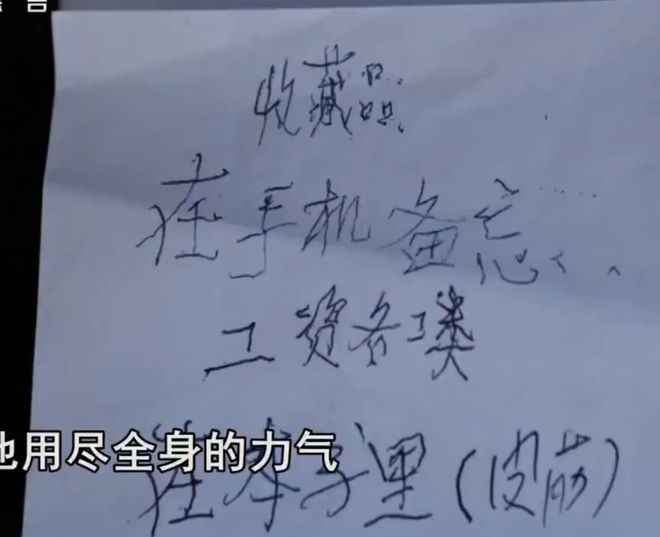 收藏品
在手机备忘
工资各类
也用尽全身的力气
在本子里(皮筋)